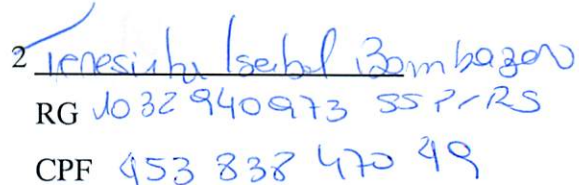 2 Teresinha Isabel Bombazar
RG 1032940973 SSP/RS
CPF 453 838 470 49